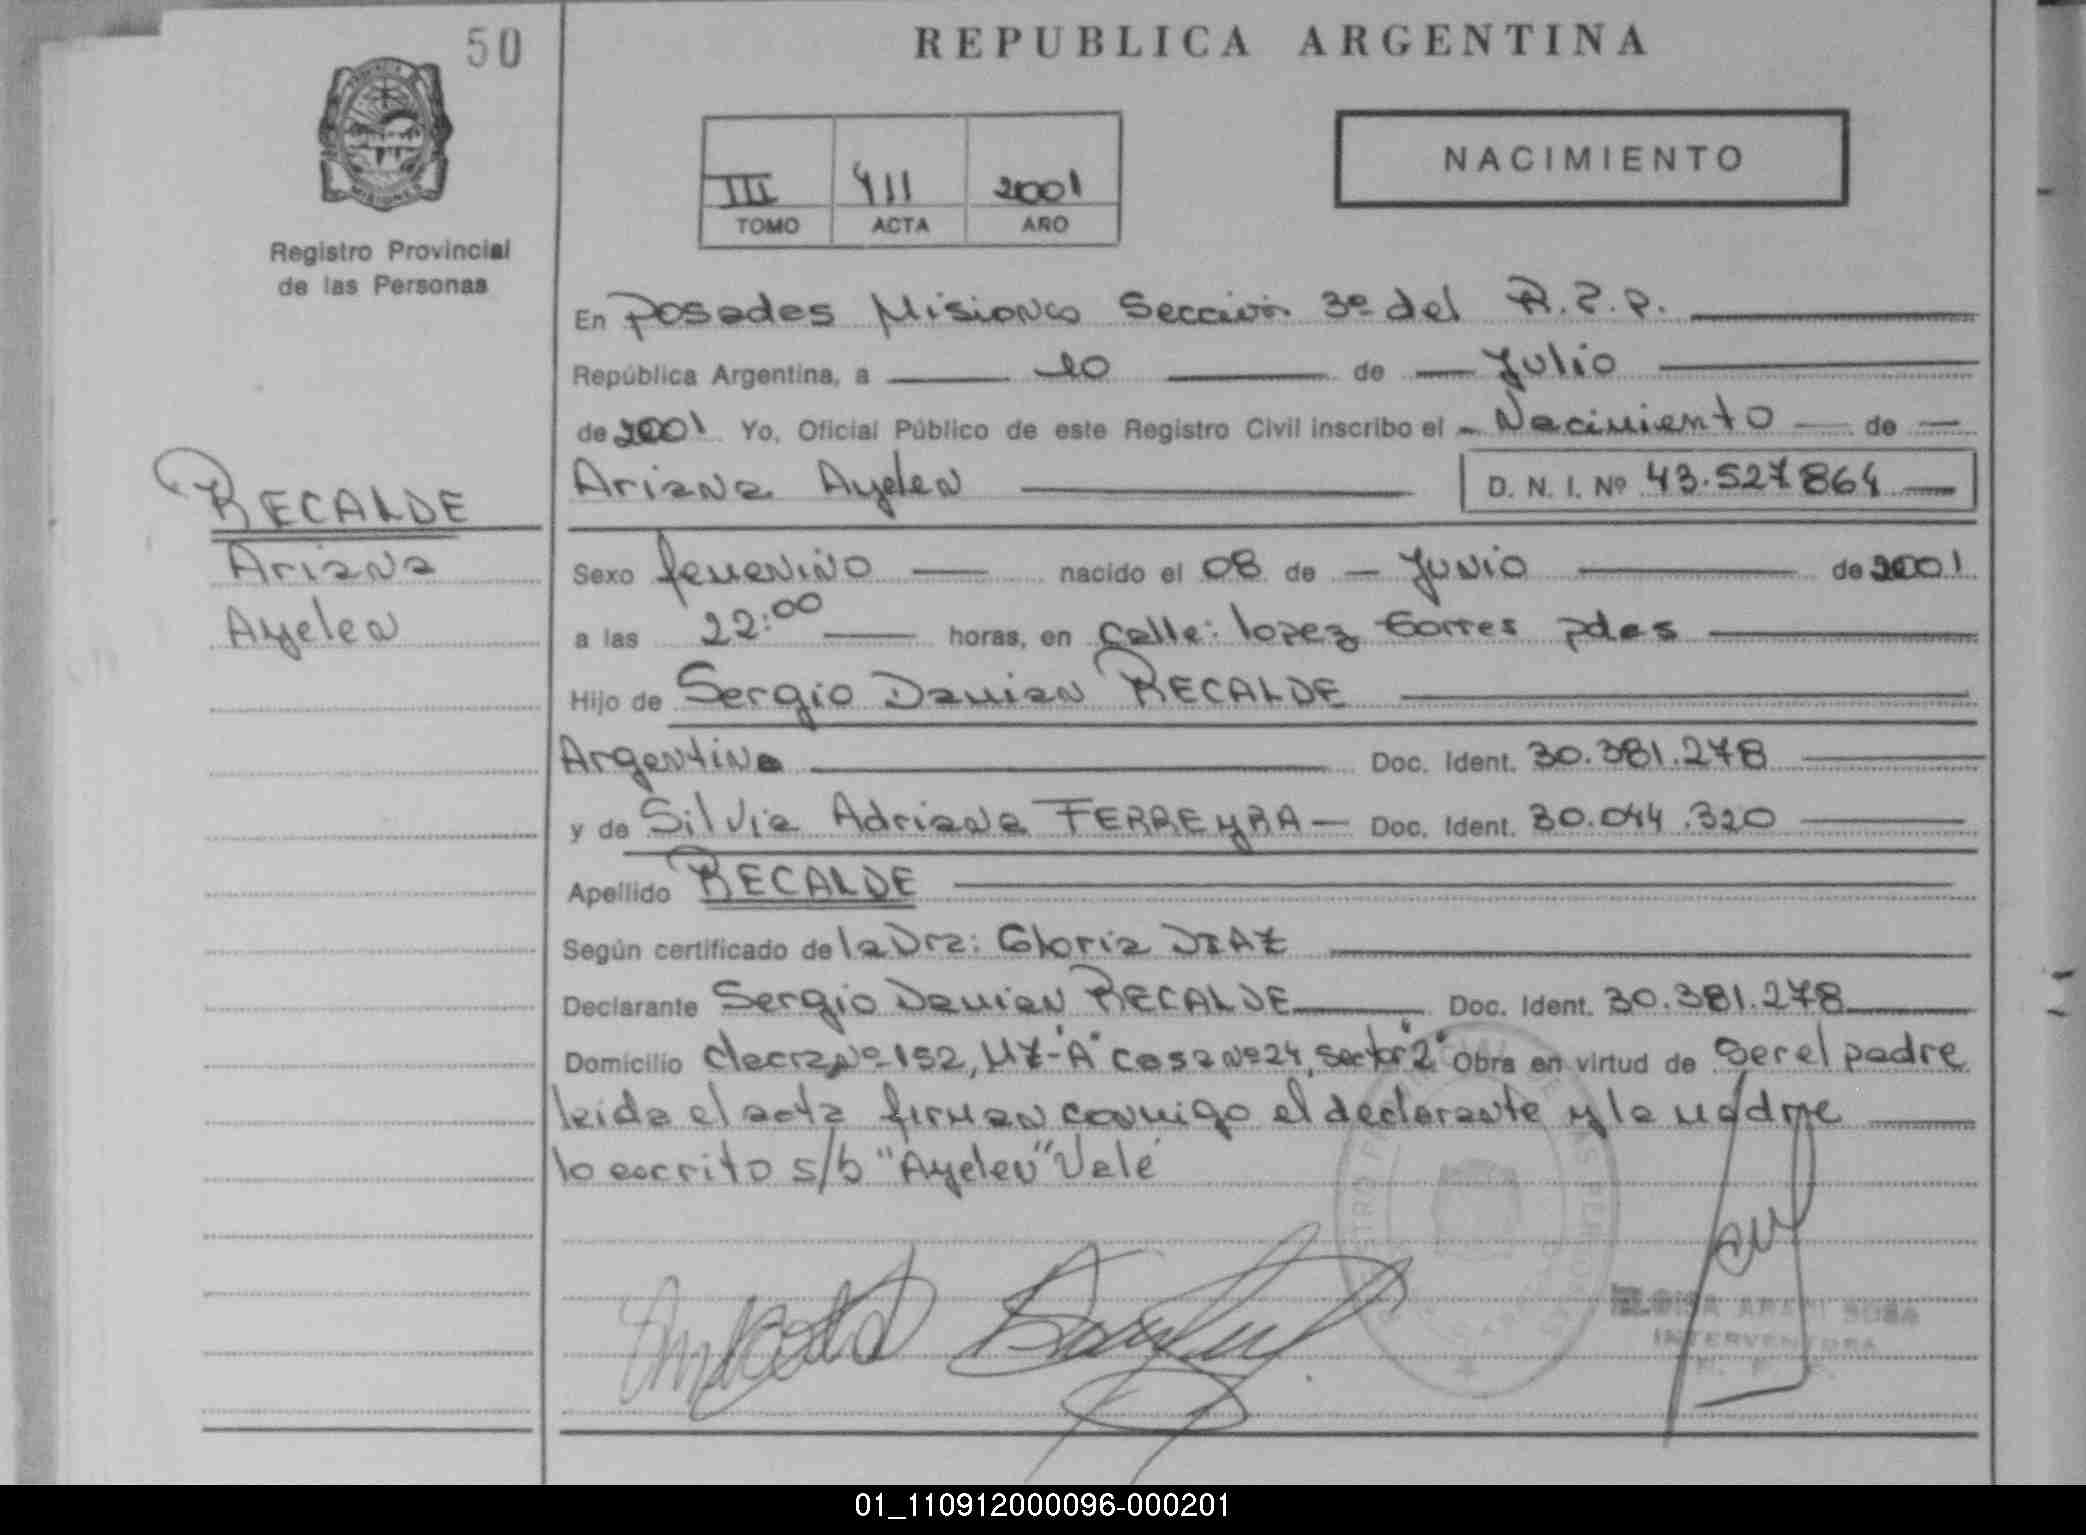 50
REPUBLICA ARGENTINA
III 411 2001
TOMO ACTA AÑO
NACIMIENTO
Registro Provincial
de las Personas
En Posadas Misiones Sección 3º del R.P.P.
República Argentina, a 10 de Julio
de 2001 Yo, Oficial Público de este Registro Civil inscribo el Nacimiento de
Ariana Ayelen D. N. I. Nº 43.527864
RECALDE
Ariana
Ayelen
Sexo femenino nacido el 08 de Junio de 2001
a las 22:00 horas, en calle: lopez torres pdas
Hijo de Sergio Damian RECALDE
Argentina Doc. Ident. 30.381.278
y de Silvia Adriana FERREyRA Doc. Ident. 30.044.320
Apellido RECALDE
Según certificado de la Dra: Gloria DIAZ
Declarante Sergio Damian RECALDE Doc. Ident. 30.381.278
Domicilio chacra nº 152, MZ-"A" casa nº 24, sector "2" Obra en virtud de Ser el padre
leida el acta firman conmigo el declarante y la madre
lo escrito s/b "Ayelen" Vale
SOSA
INTERVENTORA
01_110912000096-000201